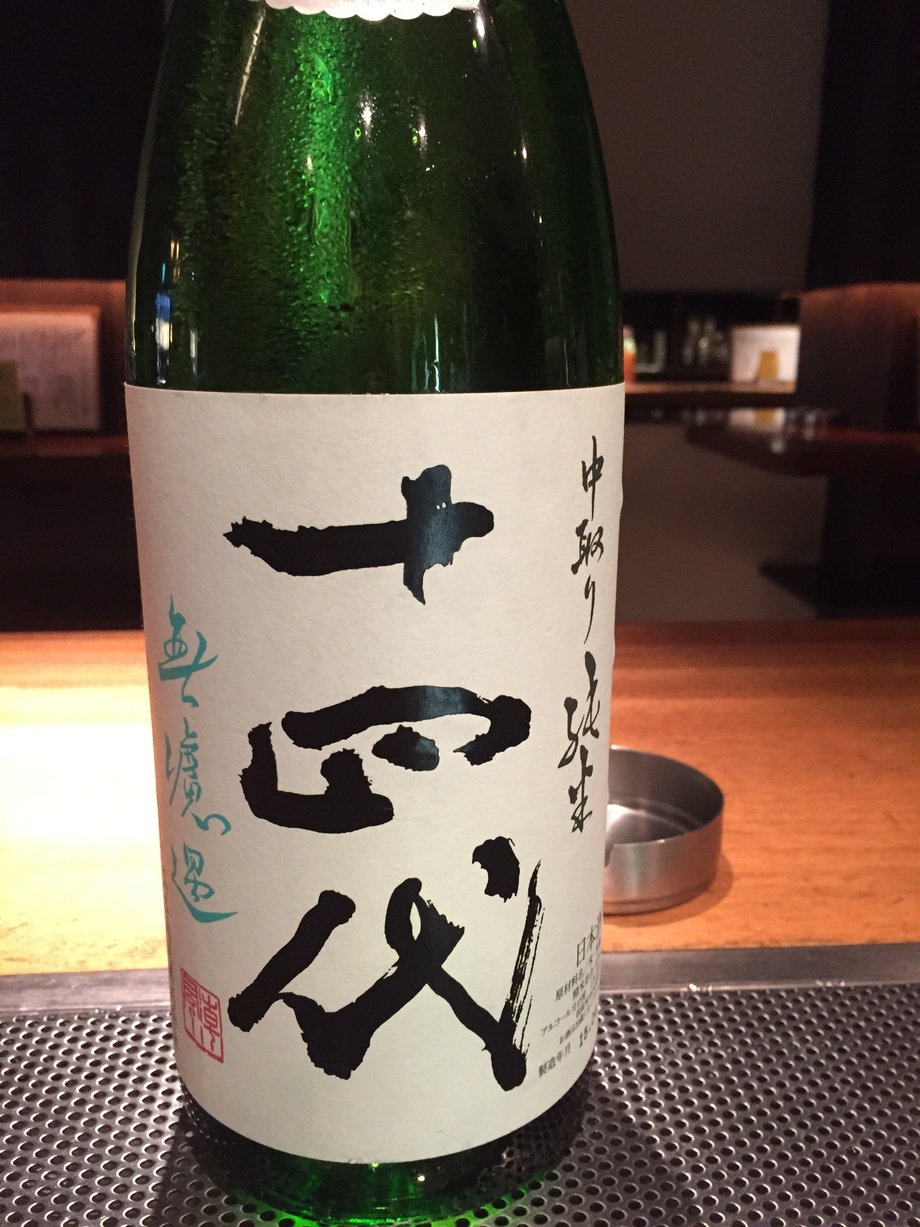 中取り純米
十四代
無濾過
日本酒
原材料名
アルコール
製造年月